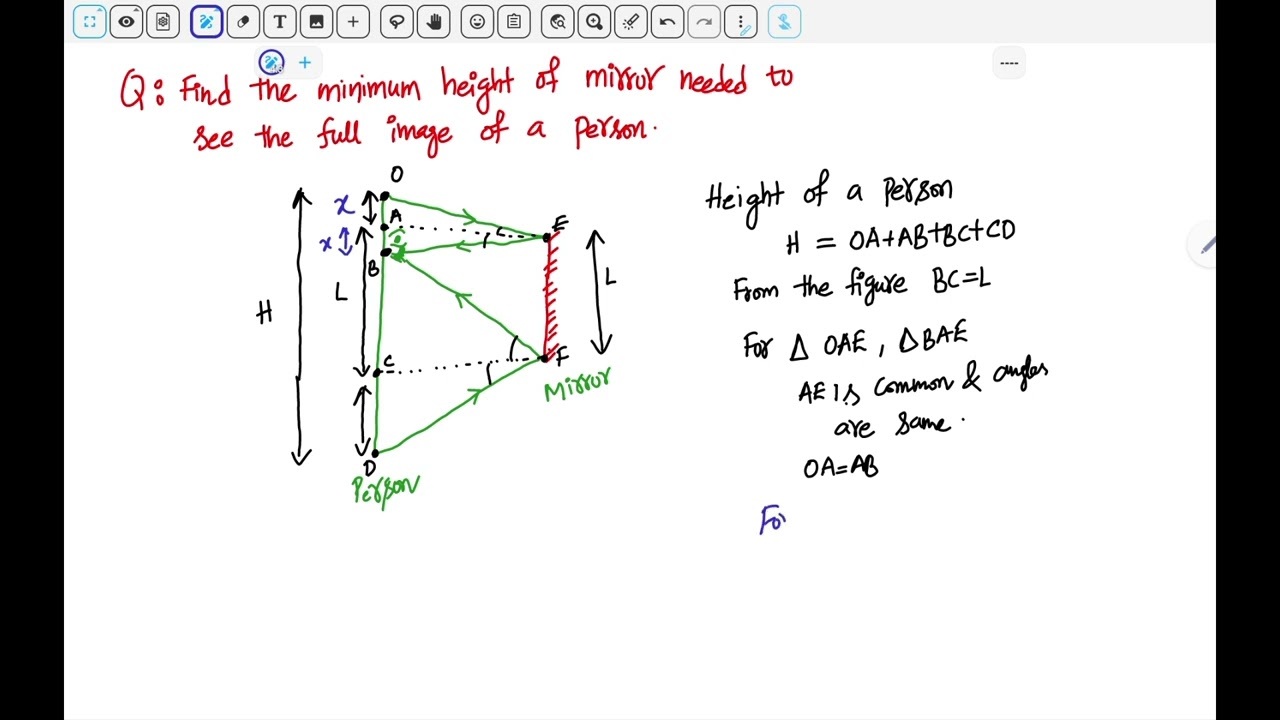 Q: Find the minimum height of mirror needed to
see the full image of a person.
O
x
A
E
x
B
L
L
H
C
F
Mirror
D
Person
Height of a Person
H = OA+AB+BC+CD
From the figure BC=L
For Δ OAE, ΔBAE
AE is common & angles
are same.
OA=AB
For